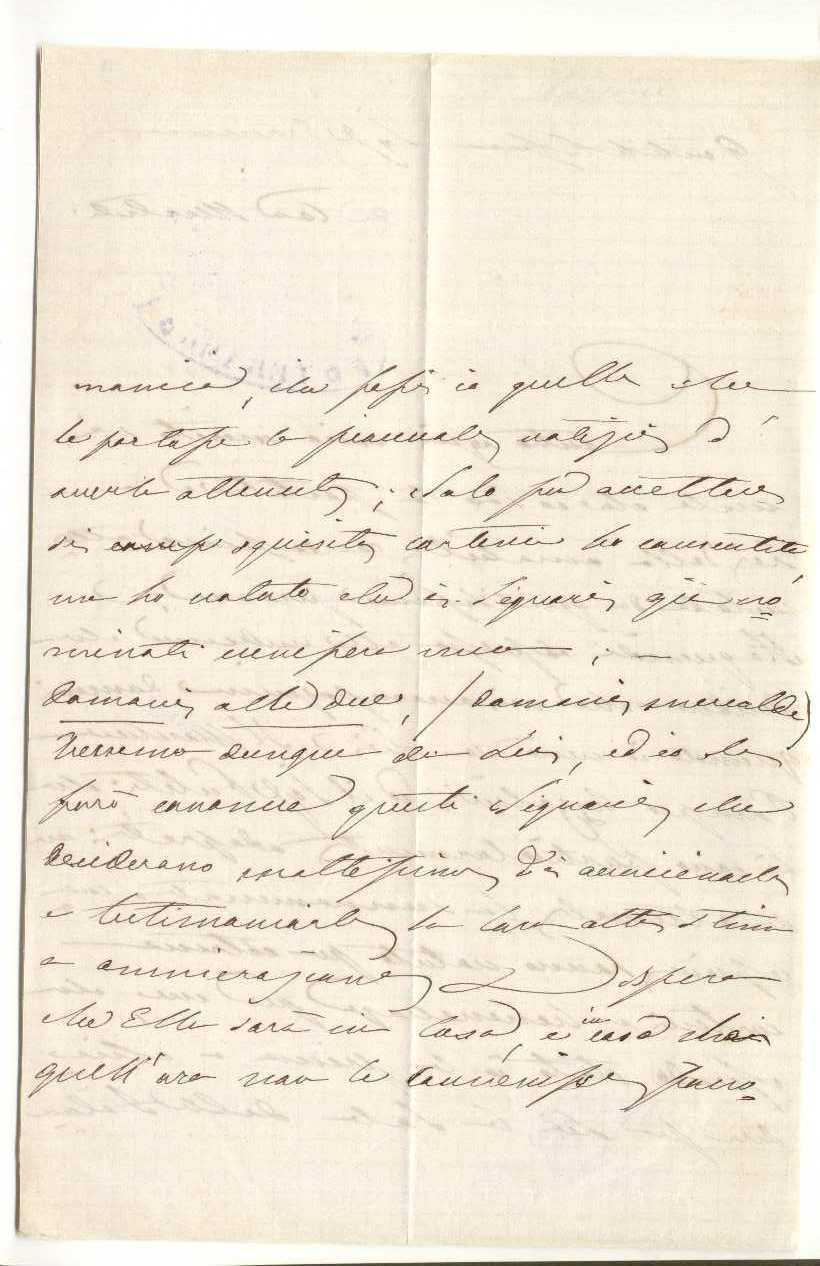 che fossi io quella che
le portasse la notizia d'
averla ottenuta; Solo per accettare
di squisita cortesia ho consentito,
ma ho voluto che i Signori già no=
minati venissero meco; —
domani alle due, (domani mercoldì)
Verremo dunque da Lei, ed io le
farò conoscere questi Signori che
desiderano moltissimo d'avvicinarla
e testimoniarle la loro alta stima
e ammirazione Spero
che Ella sarà in Casa, e in caso che
quell'ora non le convenisse